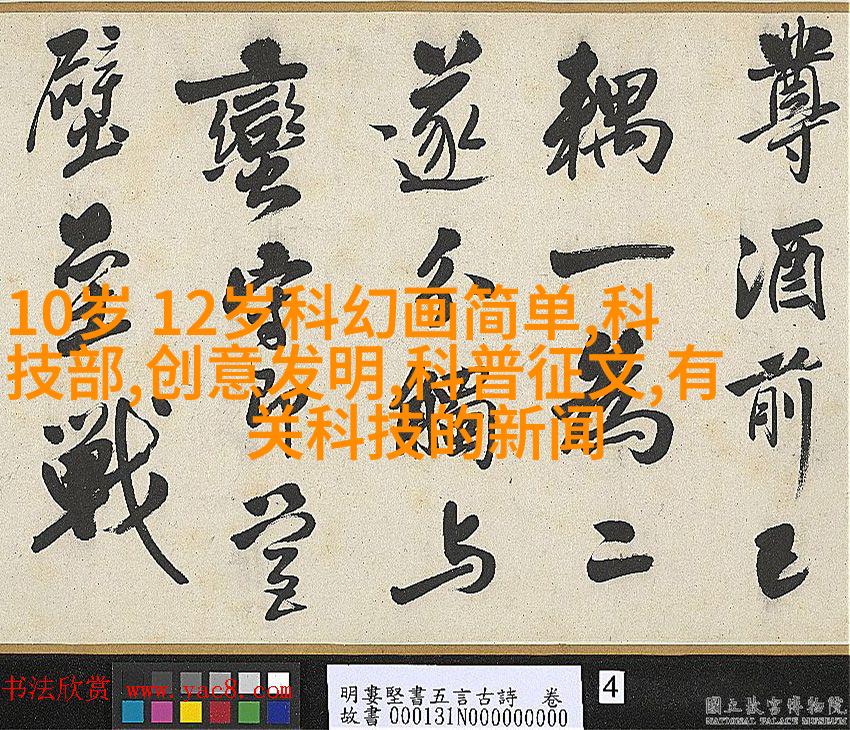 尊酒前已
耦一為二
遂
与
蠻
壁壘戰
10岁 12岁科幻画简单,科
技部,创意发明,科普征文,有
关科技的新闻
书法欣赏 www.yac8.com
明婁堅書五言古詩　卷
故書 000131N000000000
4
國立故宮博物院
NATIONAL PALACE MUSEUM